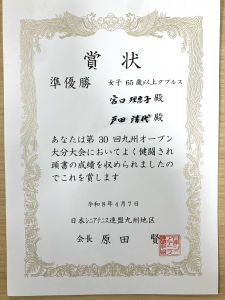 賞状
準優勝
女子 65歳以上ダブルス
宮口 殿
戸田 清代 殿
あなたは第30回九州オープン
大分大会においてよく健闘され
頭書の成績を収められましたの
でこれを賞します
令和8年4月7日
日本シニアテニス連盟九州地区
会長 原田 賢